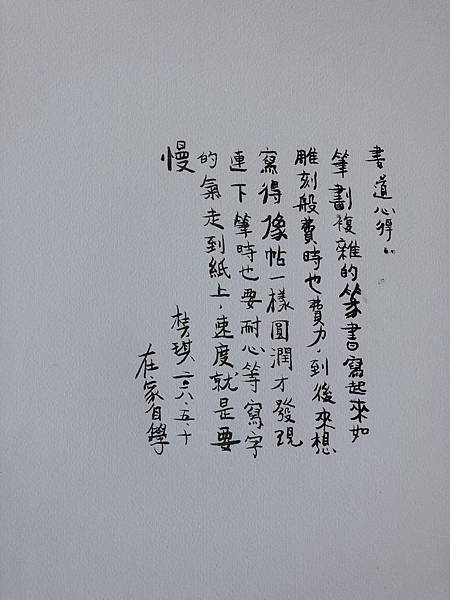 書道心得：
筆劃複雜的篆書寫起來如
雕刻般費時也費力，到後來想
寫得像帖一樣圓潤才發現
連下筆時也要耐心等寫字
的氣走到紙上，速度就是要
慢
梵琪 二六.五.十
在家自學